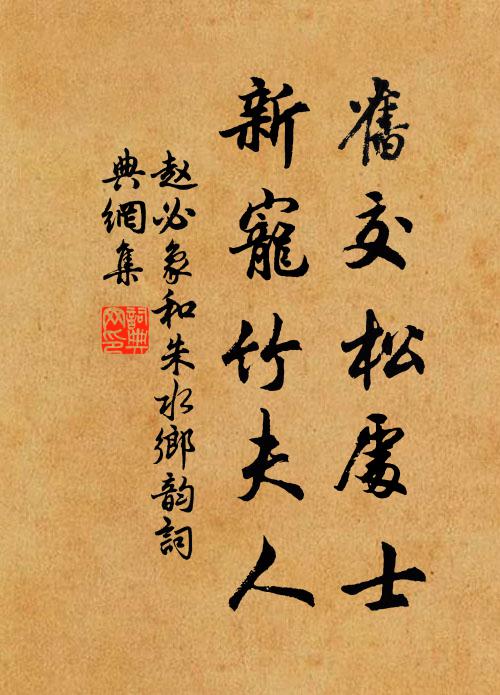 舊交松處士
新寵竹夫人
赵必象和朱水鄉韵詞
典網集
詞典网印